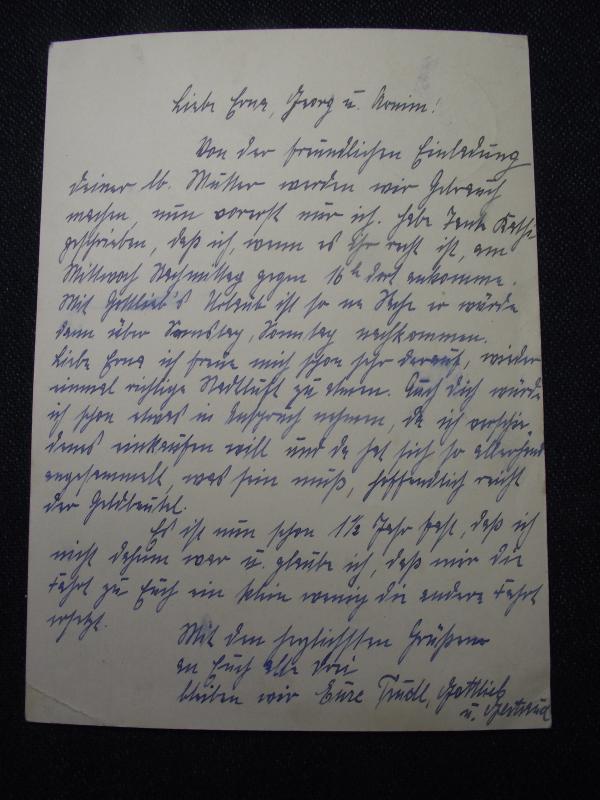 Liebe Erna, Georg u. Armin!
Von der freundlichen Einladung
deiner lb. Mutter werden wir Gebrauch
machen, nun vorerst nur ich. Habe Tante Käthe
geschrieben, daß ich, wenn es Ihr recht ist, am
Mittwoch Nachmittag gegen 16 h dort ankomme.
Mit Gottlieb's Urlaub ist so ne Sache er würde
dann über Samstag, Sonntag nachkommen.
Liebe Erna ich freue mich schon sehr darauf, wieder
einmal richtige Stadtluft zu atmen. Auch dich würde
ich schon etwas in Anspruch nehmen, da ich verschie-
denes einkaufen will und da hat sich so allerhand
angesammelt, was sein muß, hoffendlich reicht
der Geldbeutel.
Es ist nun schon 1½ Jahr fast, daß ich
nicht daheim war u. glaube ich, daß mir die
Fahrt zu Euch ein klein wenig die andere Fahrt
ersetzt.
Mit den herzlichsten Grüßen
an Euch alle drei
bleiben wir Eure Trudl, Gottlieb
u. Gertraud